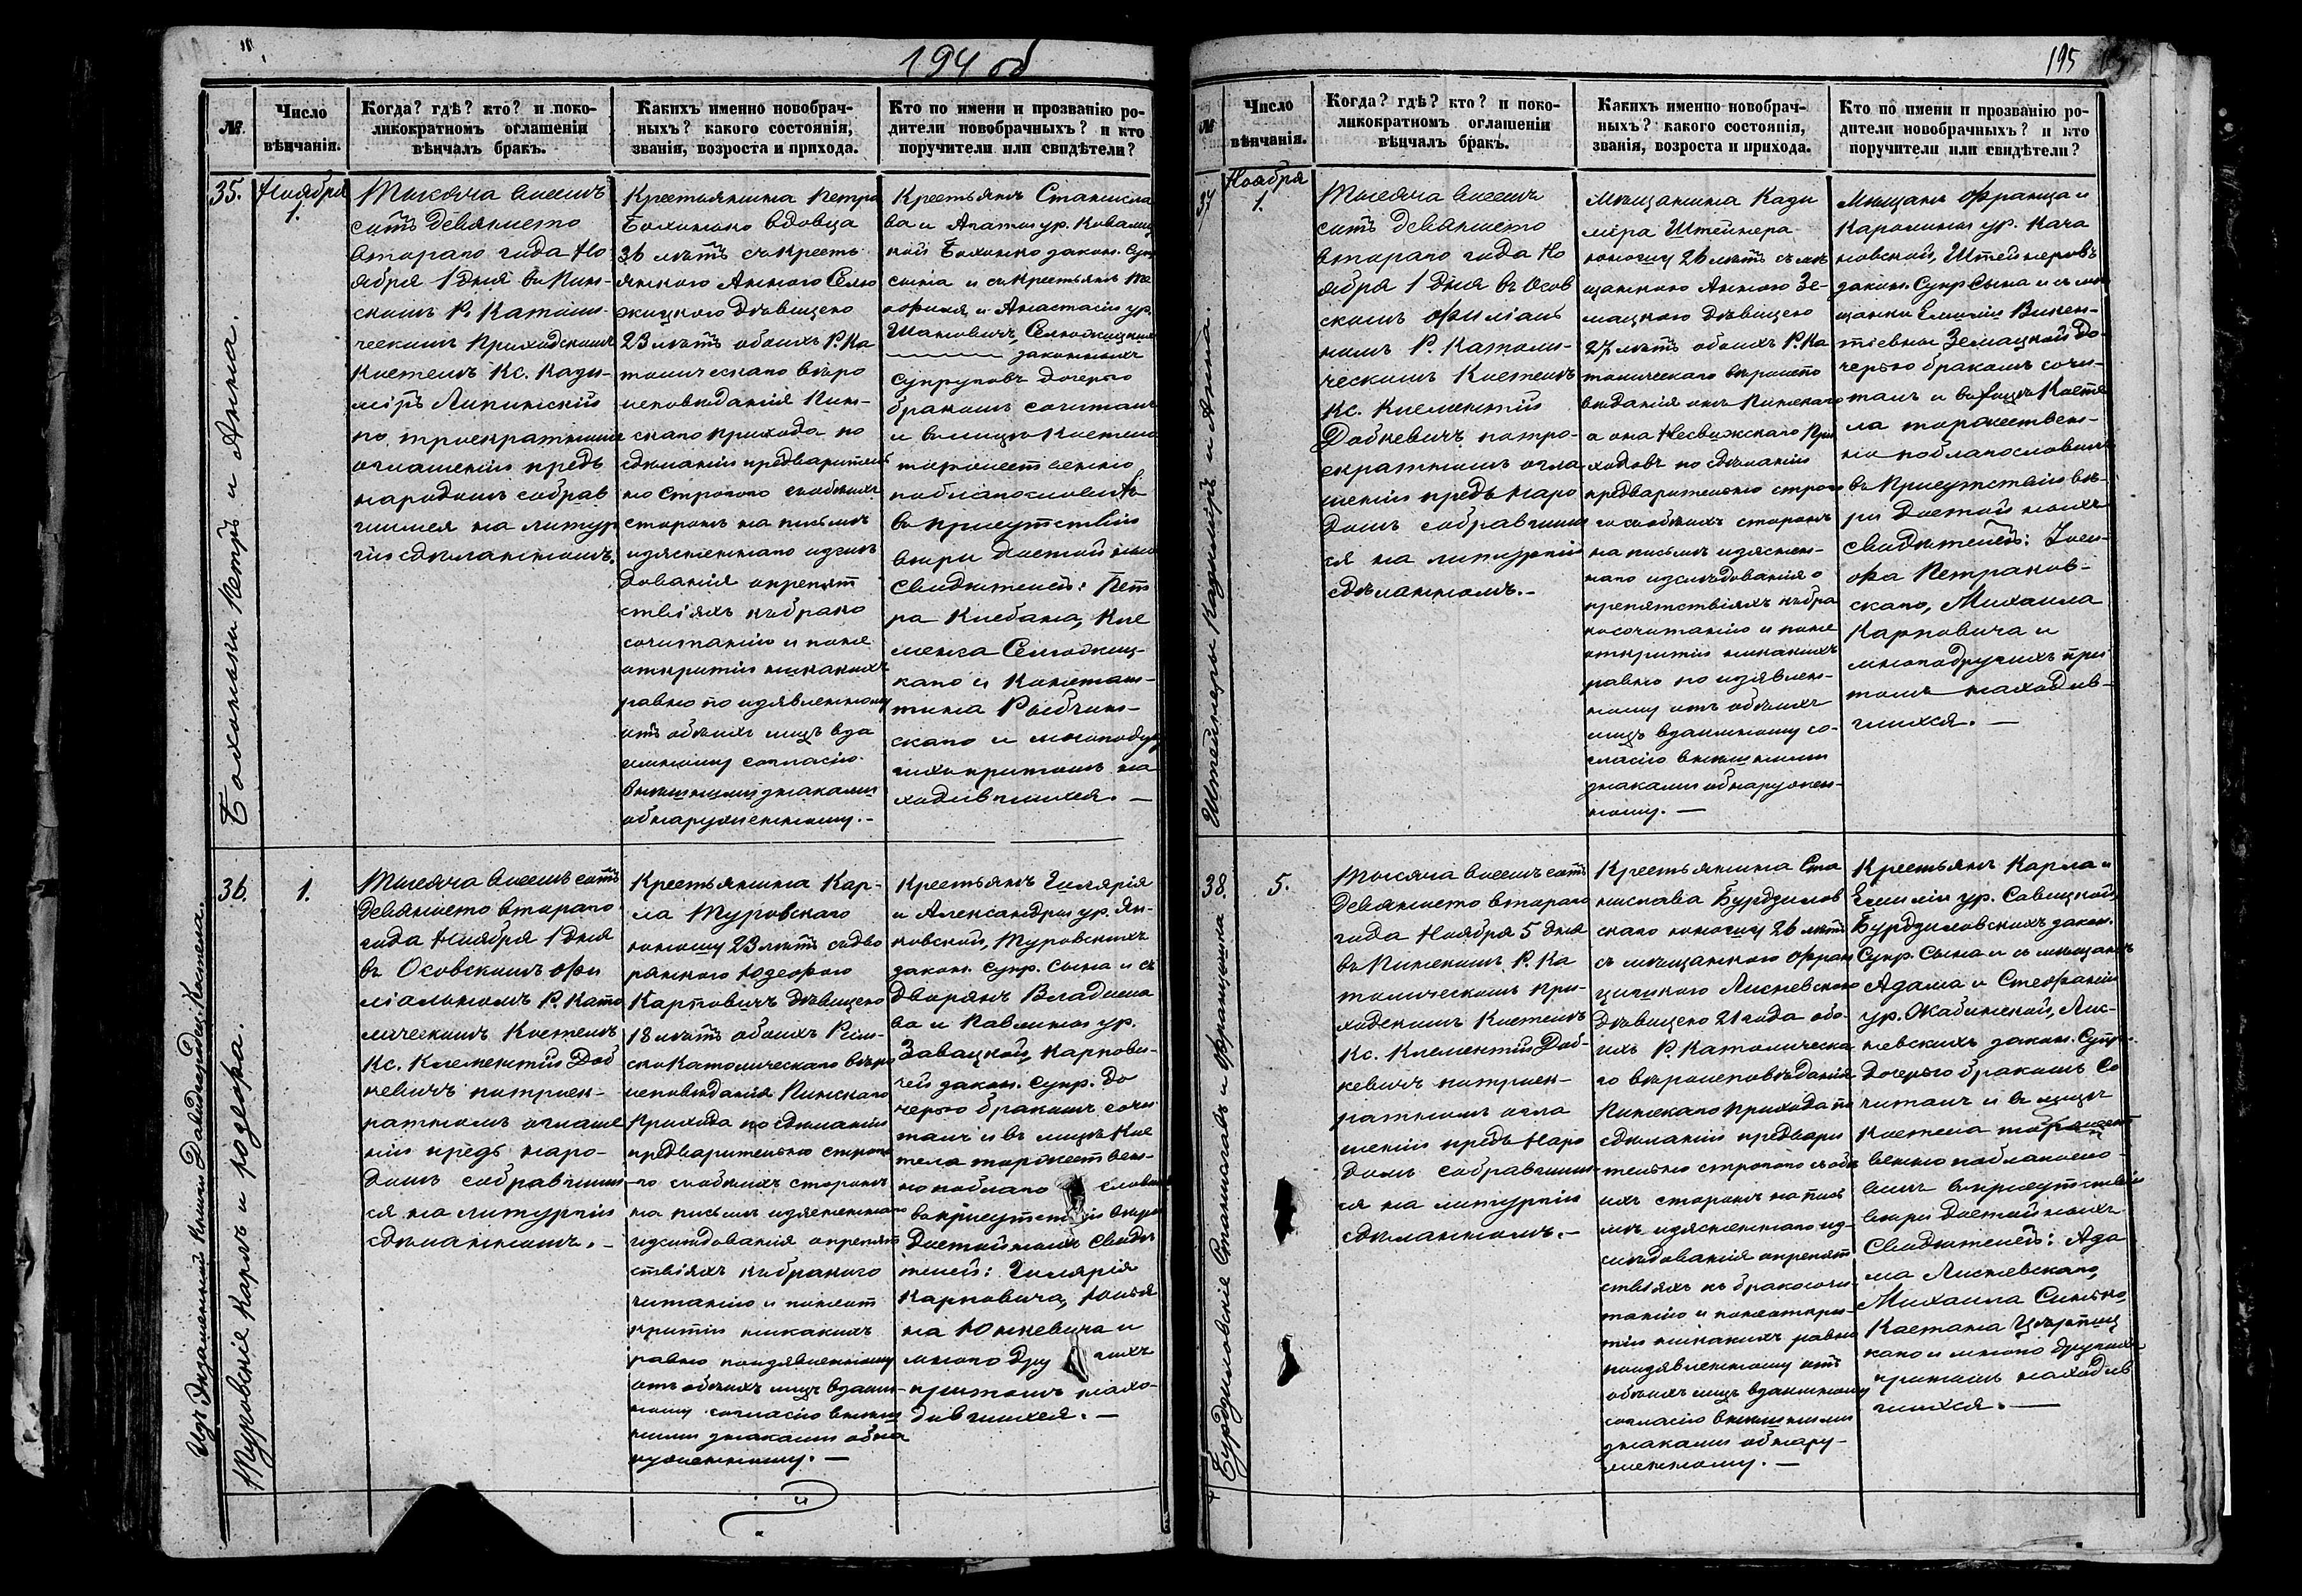 194 об
№.
Число
вѣнчанія.
Когда? гдѣ? кто? и поко-
ликократномъ оглашеніи
вѣнчалъ бракъ.
Какихъ именно новобрач-
ныхъ? какого состоянія,
званія, возроста и прихода.
Кто по имени и прозванію ро-
дители новобрачныхъ? и кто
поручители или свидѣтели?
35.
Ноября
1.
Тысяча восемь
сотъ девяносто
втораго года Но
ября 1 дня въ Пин-
скомъ Р. Католи-
ческомъ Приходскомъ
Костелѣ Кс. Кази-
міръ Липинскій
по троекратномъ
оглашеніи предъ
народомъ собрав
шимся на литур
гіи сдѣланномъ.
Крестьянина Петра
Болинко вдовца
36 лѣтъ съ кресть
янкою Анною Селю
жицкою дѣвицею
23 лѣтъ обоихъ Р. Ка
толическаго вѣро
исповѣданія Пин-
скаго прихода по
сдѣланіи предваритель
но строгого съ обѣихъ
сторонъ на письмѣ
изясненнаго изслѣ
дованія о препят
ствіяхъ къ брако
сочитанію и по не
открытіи никакихъ
равно по изявленному
отъ обѣихъ лицъ вза
имному согласію
внѣшними знаками
обнаруженному.-
Крестьянъ Станисла
ва и Агаты ур. Ковалиц
кой Болинко закон. Супр
сына и съ крестьянъ
и Анастасіи ур.
Шанович, Селюжицкихъ
законныхъ
Супруговъ дочерью
бракомъ сочиталъ
и въ лицѣ Костела
торжественно
поблагословилъ
въ присутствіи
вѣры достойныхъ
Свидѣтелей: Пет
ра Клебана, Кле
менса Селюжиц-
каго и Констан-
тина Рыбчин-
скаго и многодру
гихъ притомъ на
ходившихся. —
Болинки Петръ и Анна.
36.
1.
Тысяча восемь сотъ
девяносто втораго
года Ноября 1 дня
въ Осовскомъ Фи
ліальномъ Р. Като
лическомъ Костелѣ
Кс. Клементій Доб
кевичъ по троек-
ратномъ оглаше
ніи предъ наро-
домъ собравшим
ся на литургіи
сдѣланномъ. -
Крестьянина Кар-
ла Туровскаго
юношу 23 лѣтъ съ дво
рянкою Юзефою
Карповичъ дѣвицею
18 лѣтъ обоихъ Рим-
ско Католическаго вѣро
исповѣданія Пинскаго
Прихода по сдѣланіи
предварительно строго
-го съ обѣихъ сторонъ
на письмѣ изясненнаго
изслѣдованія о препят
ствіяхъ къ бракосо
читанію и по неот
крытіи никакихъ
равно по изявленному
отъ обѣихъ лицъ взаим-
ному согласію внѣш
ними знаками обна
руженному. —
Крестьянъ Гилярія
и Александры ур. Ян-
ковской, Туровскихъ
закон. супр. сына и съ
Дворянъ Владисла
ва и Павлины ур.
Завацкой, Карпови-
чей закон. Супр. до
черью бракомъ сочи
талъ и въ лицѣ Кос
тела торжествен-
но поблаго словилъ
въ присутствіи вѣры
достойныхъ Свидѣ
телей: Гилярія
Карповича,
на Юшкевича и
много дру гихъ
притомъ нахо-
дившихся. —
Туровскіе Карлъ и Юзефа.
Изъ Экзаменной Книги Давидгородец. Костела.
195
№
Число
вѣнчанія.
Когда? гдѣ? кто? и поко-
ликократномъ оглашеніи
вѣнчалъ бракъ.
Какихъ именно новобрач-
ныхъ? какого состоянія,
званія, возроста и прихода.
Кто по имени и прозванію ро-
дители новобрачныхъ? и кто
поручители или свидѣтели?
37
Ноября
1.
Тысяча восемь
сотъ девяносто
втораго года Но
ября 1 дня въ Осов
скомъ Филіаль
номъ Р. Католи-
ческомъ Костелѣ
Кс. Клементій
Добкевичъ по тро-
екратномъ огла
шеніи предъ наро
домъ собравшим
ся на литургіи
сдѣланномъ.-
Мѣщанина Кази
міра Штейнера
юношу 26 лѣтъ съ мѣ
щанкою Анною Зе-
мацкою дѣвицею
27 лѣтъ обоихъ Р. Ка
толическаго вѣроиспо
вѣданія онъ Пинскаго
а она Несвижскаго При
ходовъ по сдѣланіи
предварительно строго
го съ обѣихъ сторонъ
на письмѣ изяснен-
наго изслѣдованія о
препятствіяхъ къ бра
косочитанію и по не
открытіи никакихъ
равно по изявлен-
ному отъ обѣихъ
лицъ взаимному со-
гласію внѣшними
знаками обнаружен-
ному. —
Мѣщанъ Франца и
Каролины ур. Кача
новской, Штейнеровъ
закон. Супр сына и съ мѣ
щанки Емиліи Викен-
тіевны Земацкой до-
черью бракомъ сочи-
талъ и въ лицѣ Косте
ла торжествен-
но поблагословилъ
въ присутствіи вѣ-
ры достойныхъ
Свидѣтелей: Іоси-
фа Петраков-
скаго, Михаила
Карповича и
многодругихъ при
томъ находив-
шихся. —
Штейнеры Казиміръ и Анна.
38.
5.
Тысяча восемь сотъ
девяносто втораго
года Ноября 5 дня
въ Пинскомъ Р. Ка
толическомъ При-
ходскомъ Костелѣ
Кс. Клементій Доб-
кевичъ по троек-
ратномъ огла
шеніи предъ наро
домъ собравшим-
ся на литургіи
сдѣланномъ.-
Крестьянина Ста
нислава Бурдзилов
скаго юношу 26 лѣтъ
съ мѣщанкою Фран
цишкою Лисневскою
дѣвицею 21 года обо-
ихъ Р. Католическа
го вѣроисповѣданія
Пинскаго Прихода по
сдѣланіи предвари
тельно строгого съ обѣ
ихъ сторонъ на пись
мѣ изясненнаго из-
слѣдованія о препят
ствіяхъ къ бракосочи-
танію и по неоткры-
тіи никакихъ равно
по изявленному отъ
обѣихъ лицъ взаимному
согласію внѣшними
знаками обнару-
женному. —
Крестьянъ Карла и
Емиліи ур. Савицкой,
Бурдзиловскихъ закон.
Супр. Сына и съ мѣщанъ
Адама и Стефаніи
ур. Жабинской, Лис-
невскихъ закон. Супр.
дочерью бракомъ со
читалъ и въ лицѣ
Костела торжест
венно поблагосло-
вилъ въ присутствіи
вѣры достойныхъ
Свидѣтелей: Ада
ма Лисневскаго,
Михаила
Каетана
каго и много другихъ
притомъ находив
шихся. —
Бурдзиловскіе Станиславъ и Францишка